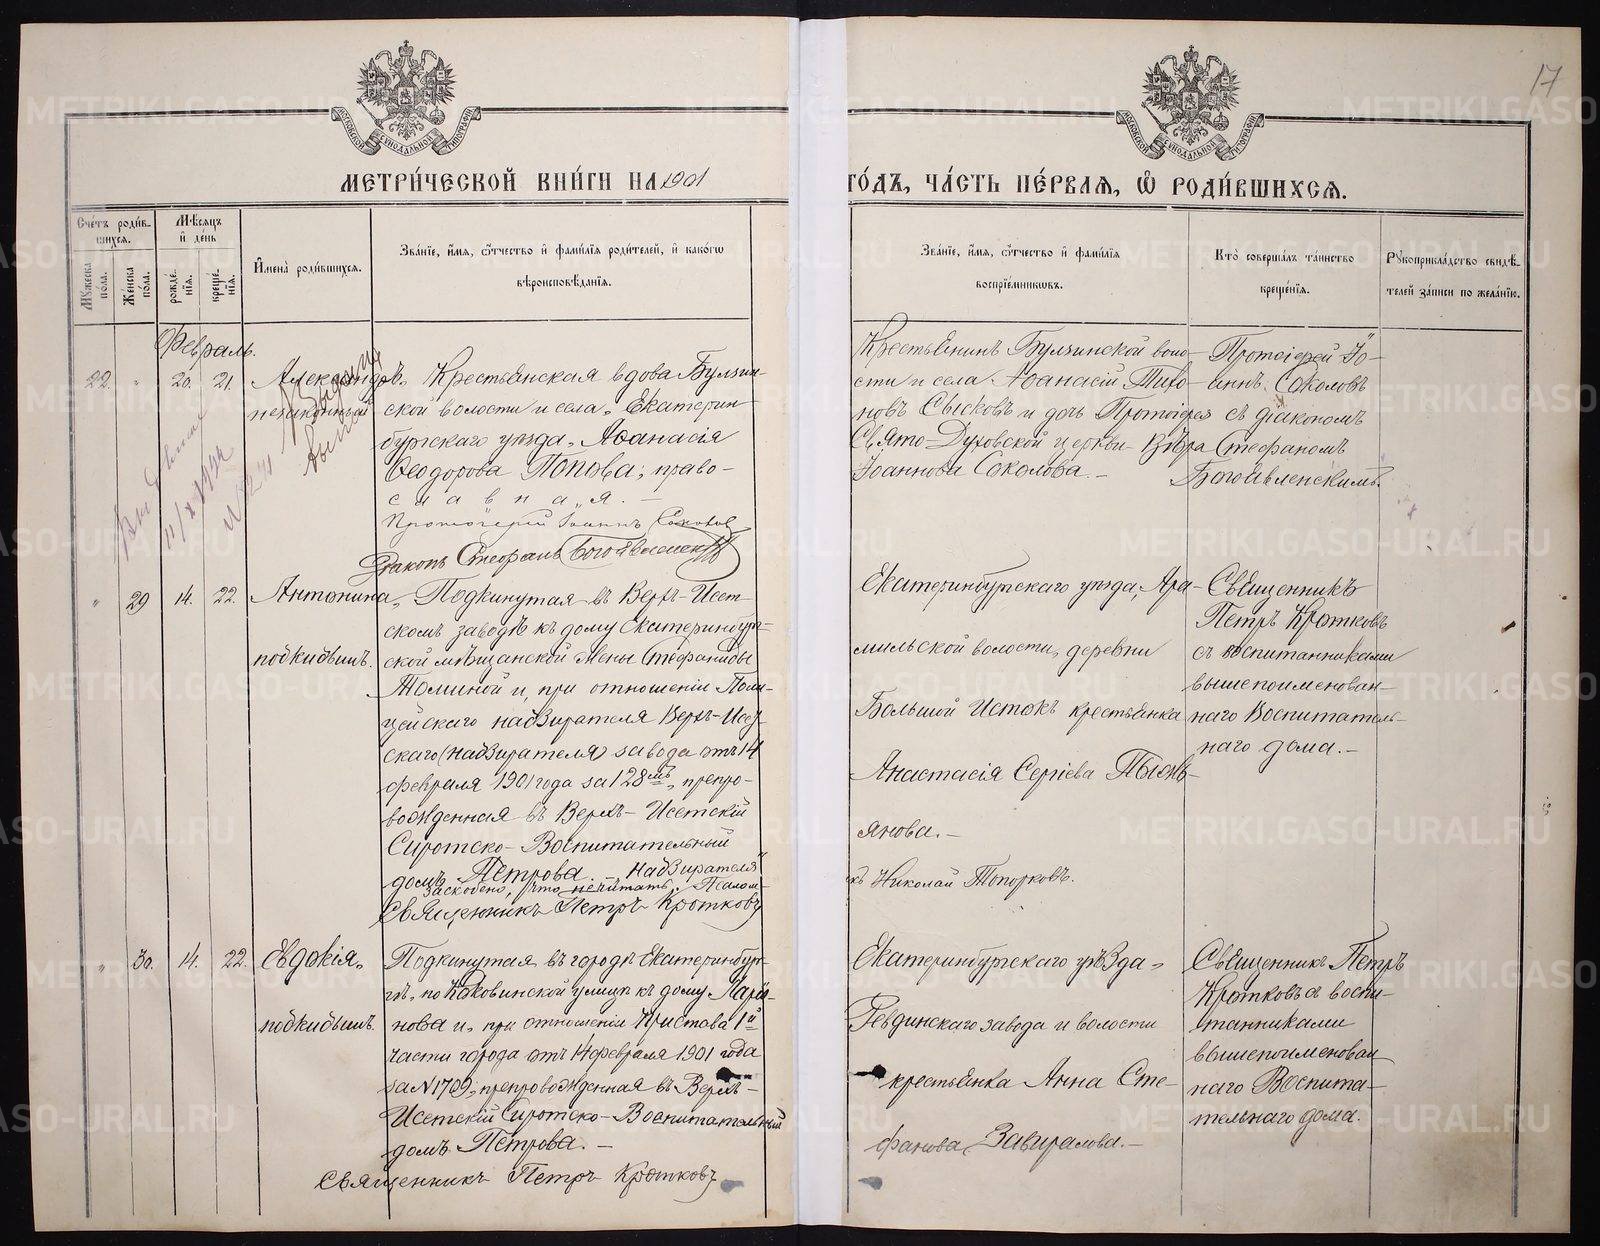 17
МОСКОВСКОЙ СѴНОДАЛЬНОЙ ТИПОГРАФІИ
МОСКОВСКОЙ СѴНОДАЛЬНОЙ ТИПОГРАФІИ
МЕТРИ́ЧЕСКОЙ КНИ́ГИ НА 1901
ГО́ДЪ, ЧА́СТЬ ПЕ́РВАЯ, Ѡ҆ РОДИ́ВШИХСЯ.
Сче́тъ роди́в-
шихся.
Мѣ́сяцъ
и҆ де́нь
Му́жеска по́ла.
Же́нска по́ла.
рожде́нія.
креще́нія.
И҆мена̀ роди́вшихся.
Зва́ніе, и҆́мя, ѻ҆́тчество и҆ фами́лія роди́телей, и҆ како́гѡ
вѣроисповѣ́данія.
Зва́ніе, и҆́мя, ѻ҆́тчество и҆ фами́лія
воспріе́мниковъ.
Кто̀ соверша́лъ та́инство
креще́нія.
Рꙋкоприкла́дство свидѣ́-
телей за́писи по жела́нію.
Февраль.
22. " 20. 21.
Александръ,
незаконный
Крестьянская вдова Булзин-
ской волости и села, Екатерин-
бургскаго уѣзда, Аѳанасія
Ѳеодорова Попова; право-
славная. —
Протоіерей Іоаннъ Соколов
Діаконъ Стефанъ Богоявленскій
Крестьянинъ Булзинской воло-
сти и села Аѳанасій Тихо-
новъ Сысковъ и дочь Протоіерея
Свято-Духовской церкви Вѣра
Іоаннова Соколова. —
Протоіерей Іо-
аннъ Соколовъ
съ діакономъ
Стефаномъ
Богоявленскимъ.
11/X 1922
" 29 14. 22.
Антонина,
подкидышъ.
Подкинутая въ Верхъ-Исет-
скомъ заводѣ къ дому Екатеринбург-
ской мѣщанской жены Стефаниды
Томиной и, при отношеніи Поли-
цейскаго надзирателя Верхъ-Исет-
скаго (надзирателя) завода отъ 14
февраля 1901 года за 128мъ, препро-
вожденная въ Верхъ-Исетскій
Сиротско-Воспитательный
домъ Петрова. — „Надзирателя"
заскоблено, что нечитать. Псалом-
Священникъ Петръ Кротковъ
Екатеринбургскаго уѣзда, Ара-
мильской волости, деревни
Большой Истокъ крестьянка
Анастасія Сергіева Пьянь-
янова. —
къ Николай Топорковъ.
Священникъ
Петръ Кротковъ
съ воспитанниками
вышепоименован-
наго Воспитатель-
наго дома. —
" 30. 14. 22.
Евдокія,
подкидышъ.
Подкинутая въ городѣ Екатеринбур-
гѣ, по Коковинской улицѣ къ дому Лари-
нова и, при отношеніи Пристава 1й
части города отъ 14 февраля 1901 года
за N 1709, препровожденная въ Верхъ-
Исетскій Сиротско-Воспитательный
домъ Петрова. —
Священникъ Петръ Кротковъ
Екатеринбургскаго уѣзда,
Ревдинскаго завода и волости
крестьянка Анна Сте-
фанова Завиралова. —
Священникъ Петръ
Кротковъ съ воспи-
танниками
вышепоименован-
наго Воспита-
тельнаго дома.
METRIKI.GASO-URAL.RU